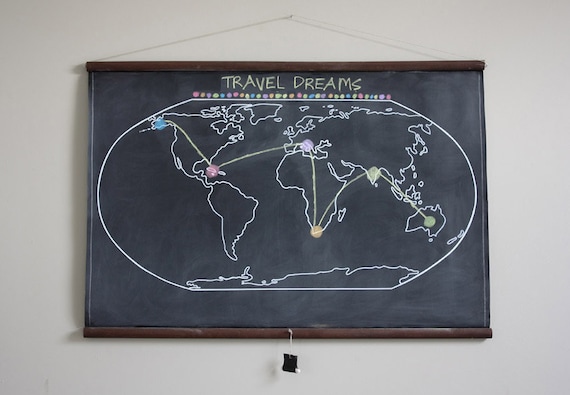 TRAVEL DREAMS